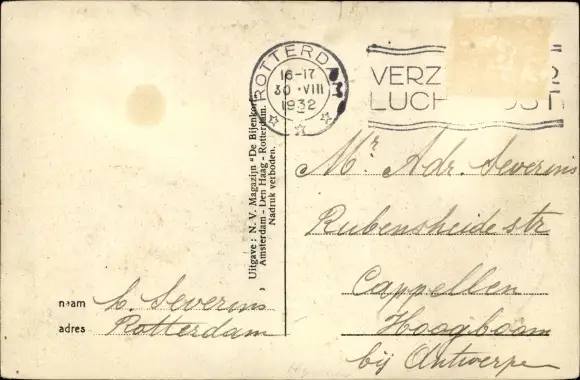 ROTTERDAM
16-17
30 · VIII
1932
VERZ
LUCH POST
Uitgave: N. V. Magazijn "De Bijenkorf"
Amsterdam - Den Haag - Rotterdam.
Nadruk verboden.
Mr Adr. Severins
Rubensheide str
Cappellen
Hoogboom
bij Antwerpen
naam L. Severins
adres Rotterdam